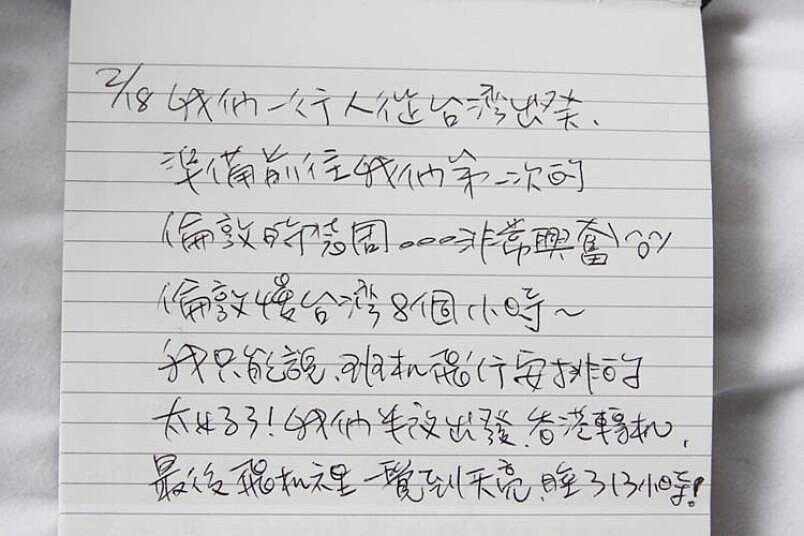 2/18 我們一行人從台灣出發、
準備前往我們第一次的
倫敦時裝周...非常興奮^o^
倫敦慢台灣8個小時~
我只能說、班机飛行安排的
太好了!我們半夜出發、香港轉机、
最後飛机裡一覺到天亮、睡了13小時!